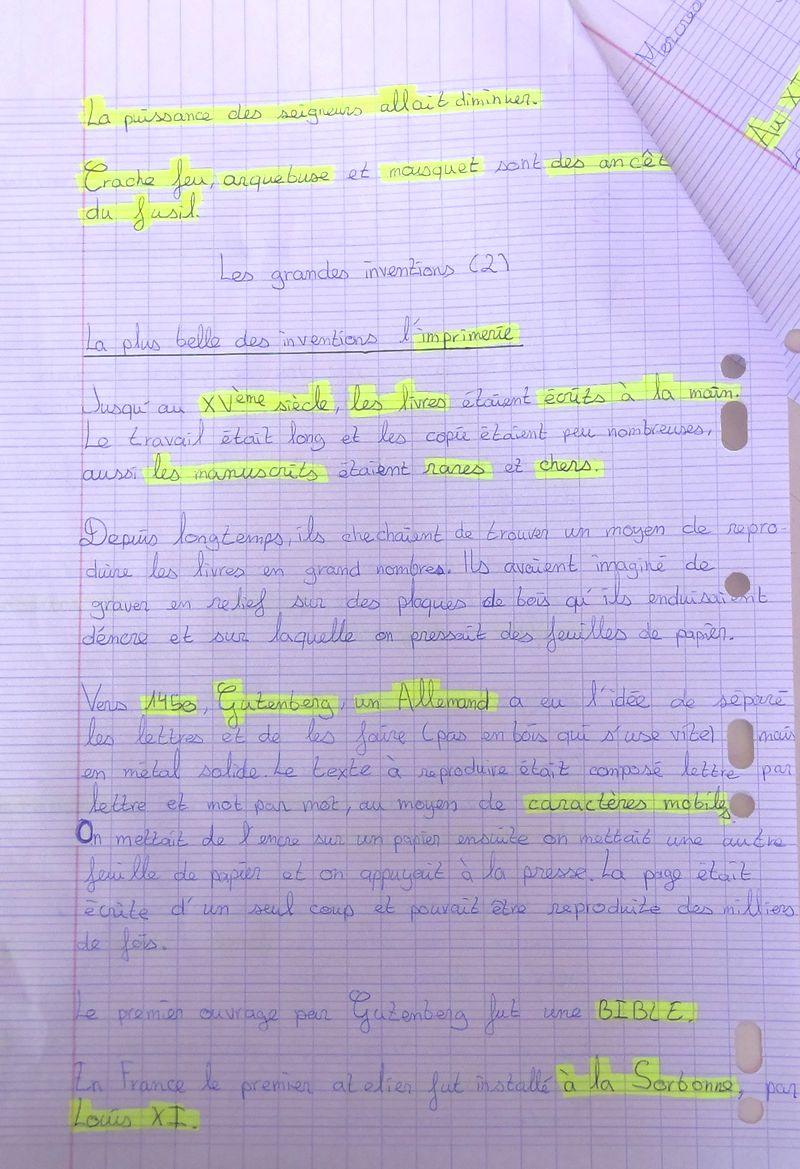 La puissance des seigneurs allait diminuer.
Crache feu, arquebuse et mousquet sont des ancêt
du fusil.
Les grandes inventions (2)
La plus belle des inventions l'imprimerie
Jusqu'au XVème siècle, les livres étaient écrits à la main.
Le travail était long et les copie étaient peu nombreuses,
aussi les manuscrits étaient rares et chers.
Depuis longtemps, ils chechaient de trouver un moyen de repro-
duire les livres en grand nombres. Ils avaient imaginé de
graver en relief sur des plaques de bois qu'ils enduisaient
d'encre et sur laquelle on pressait des feuilles de papier.
Vers 1450, Gutenberg, un Allemand a eu l'idée de séparé
les lettres et de les faire (pas en bois qui s'use vite) mais
en métal solide. Le texte à reproduire était composé lettre par
lettre et mot par mot, au moyen de caractères mobiles.
On mettait de l'encre sur un papier ensuite on mettait une autre
feuille de papier et on appuyait à la presse. La page était
écrite d'un seul coup et pouvait être reproduite des milliers
de fois.
Le premier ouvrage par Gutenberg fut une BIBLE.
En France le premier atelier fut installé à la Sorbonne, par
Louis XI.
Mercre
Au XV